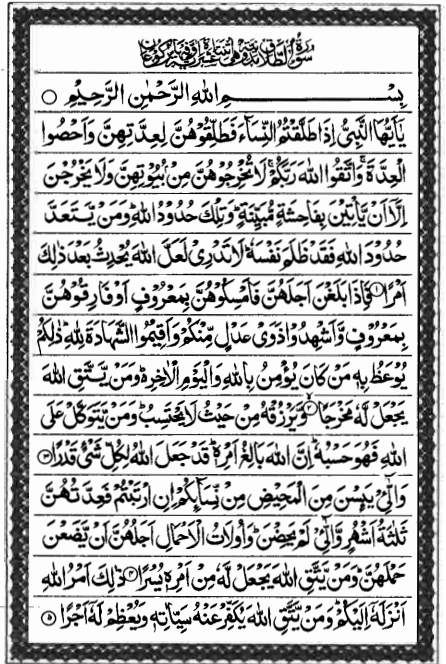 سورة الطلاق مدنية وهي اثنتا عشرة اية وفيها ركوعان
بِسْمِ اللهِ الرَّحْمٰنِ الرَّحِيْمِ ○
يٰۤاَيُّهَا النَّبِىُّ اِذَا طَلَّقْتُمُ النِّسَآءَ فَطَلِّقُوْهُنَّ لِعِدَّتِهِنَّ وَاَحْصُوا
الْعِدَّةَ ۚ وَاتَّقُوا اللهَ رَبَّكُمْ ۚ لَا تُخْرِجُوْهُنَّ مِنْۢ بُيُوْتِهِنَّ وَلَا يَخْرُجْنَ
اِلَّاۤ اَنْ يَّاْتِيْنَ بِفَاحِشَةٍ مُّبَيِّنَةٍ ؕ وَتِلْكَ حُدُوْدُ اللهِ ؕ وَمَنْ يَّتَعَدَّ
حُدُوْدَ اللهِ فَقَدْ ظَلَمَ نَفْسَهٗ ؕ لَا تَدْرِىْ لَعَلَّ اللهَ يُحْدِثُ بَعْدَ ذٰلِكَ
اَمْرًا ① فَاِذَا بَلَغْنَ اَجَلَهُنَّ فَاَمْسِكُوْهُنَّ بِمَعْرُوْفٍ اَوْ فَارِقُوْهُنَّ
بِمَعْرُوْفٍ وَّاَشْهِدُوْا ذَوَىْ عَدْلٍ مِّنْكُمْ وَاَقِيْمُوا الشَّهَادَةَ لِلّٰهِ ؕ ذٰلِكُمْ
يُوْعَظُ بِهٖ مَنْ كَانَ يُؤْمِنُ بِاللهِ وَالْيَوْمِ الْاٰخِرِ ؕ وَمَنْ يَّتَّقِ اللهَ
يَجْعَلْ لَّهٗ مَخْرَجًا ② وَّيَرْزُقْهُ مِنْ حَيْثُ لَا يَحْتَسِبُ ؕ وَمَنْ يَّتَوَكَّلْ عَلَى
اللهِ فَهُوَ حَسْبُهٗ ؕ اِنَّ اللهَ بَالِغُ اَمْرِهٖ ؕ قَدْ جَعَلَ اللهُ لِكُلِّ شَىْءٍ قَدْرًا ③
وَالّٰٓـىِٔ يَئِسْنَ مِنَ الْمَحِيْضِ مِنْ نِّسَآئِكُمْ اِنِ ارْتَبْتُمْ فَعِدَّتُهُنَّ
ثَلٰثَةُ اَشْهُرٍ وَّالّٰٓـىِٔ لَمْ يَحِضْنَ ؕ وَاُولَاتُ الْاَحْمَالِ اَجَلُهُنَّ اَنْ يَّضَعْنَ
حَمْلَهُنَّ ؕ وَمَنْ يَّتَّقِ اللهَ يَجْعَلْ لَّهٗ مِنْ اَمْرِهٖ يُسْرًا ④ ذٰلِكَ اَمْرُ اللهِ
اَنْزَلَهٗۤ اِلَيْكُمْ ؕ وَمَنْ يَّتَّقِ اللهَ يُكَفِّرْ عَنْهُ سَيِّاٰتِهٖ وَيُعْظِمْ لَهٗۤ اَجْرًا ⑤